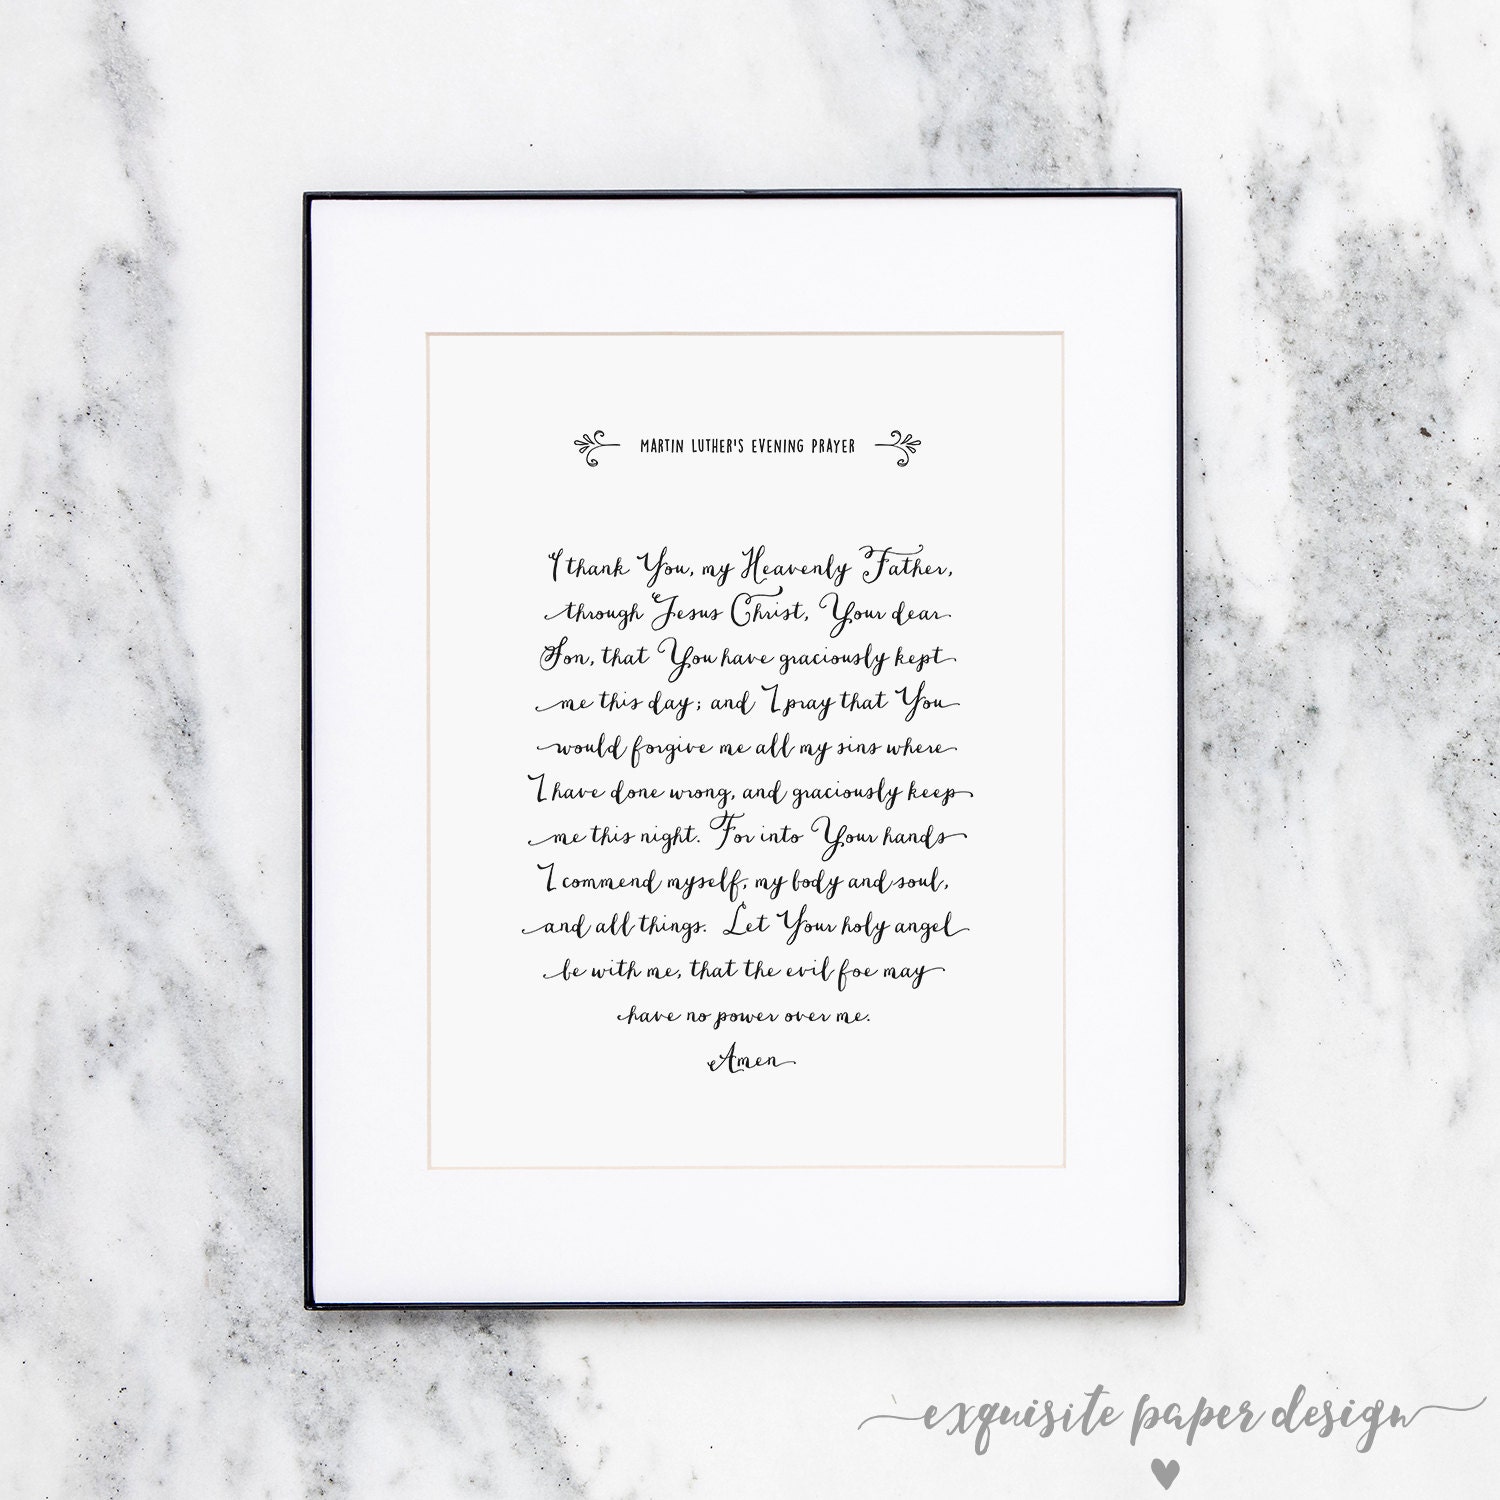 MARTIN LUTHER'S EVENING PRAYER
I thank You, my Heavenly Father,
through Jesus Christ, Your dear
Son, that You have graciously kept
me this day; and I pray that You
would forgive me all my sins where
I have done wrong, and graciously keep
me this night. For into Your hands
I commend myself, my body and soul,
and all things. Let Your holy angel
be with me, that the evil foe may
have no power over me.
Amen
exquisite paper design